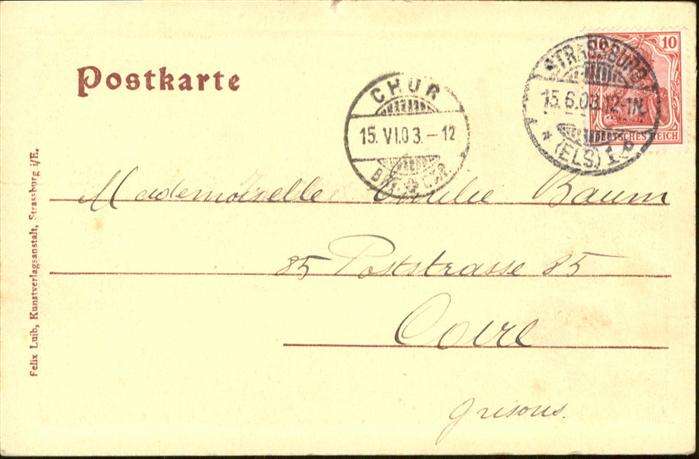 Postkarte
CHUR
15. VI.03.-12
10
STRASSBURG
15.6.03.12-1N.
* (ELS) 1 b
DEUTSCHES REICH
Mademoiselle Emilie Baum
85 Poststrasse 85
Coire
grisons.
Felix Luib, Kunstverlagsanstalt, Strassburg i/E.